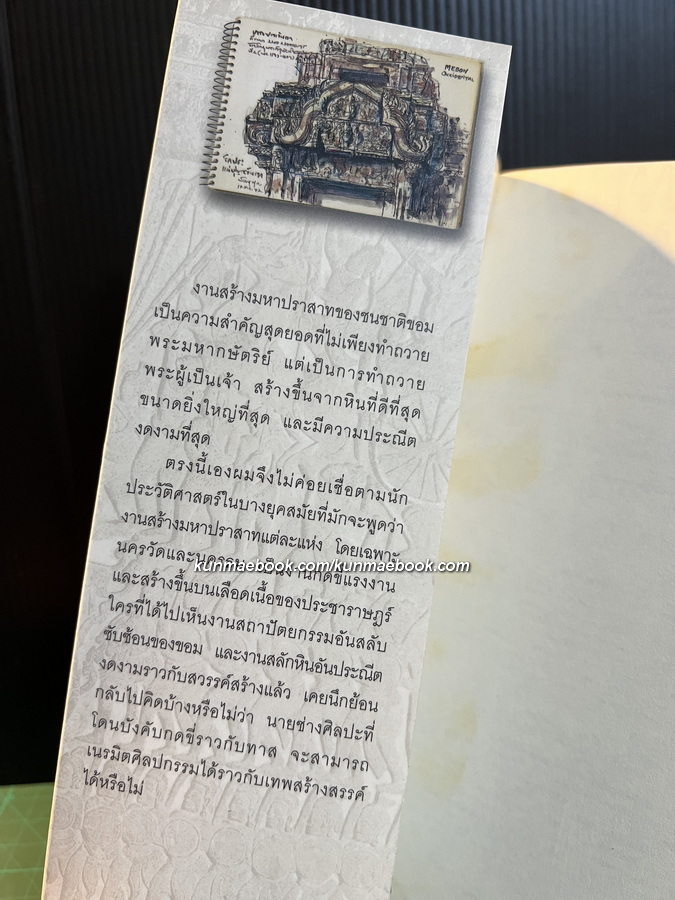 MEBON
OCCIDENTAL
งานสร้างมหาปราสาทของชนชาติขอม
เป็นความสำคัญสุดยอดที่ไม่เพียงทำถวาย
พระมหากษัตริย์ แต่เป็นการทำถวาย
พระผู้เป็นเจ้า สร้างขึ้นจากหินที่ดีที่สุด
ขนาดยิ่งใหญ่ที่สุด และมีความประณีต
งดงามที่สุด
ตรงนี้เองผมจึงไม่ค่อยเชื่อตามนัก
ประวัติศาสตร์ในบางยุคสมัยที่มักจะพูดว่า
งานสร้างมหาปราสาทแต่ละแห่ง โดยเฉพาะ
นครวัดและนครธม เป็นงานกดขี่แรงงาน
kunmaebook.com/kunmaebook.com
และสร้างขึ้นบนเลือดเนื้อของประชาราษฎร์
ใครที่ได้ไปเห็นงานสถาปัตยกรรมอันสลับ
ซับซ้อนของขอม และงานสลักหินอันประณีต
งดงามราวกับสวรรค์สร้างแล้ว เคยนึกย้อน
กลับไปคิดบ้างหรือไม่ว่า นายช่างศิลปะที่
โดนบังคับกดขี่ราวกับทาส จะสามารถ
เนรมิตศิลปกรรมได้ราวกับเทพสร้างสรรค์
ได้หรือไม่